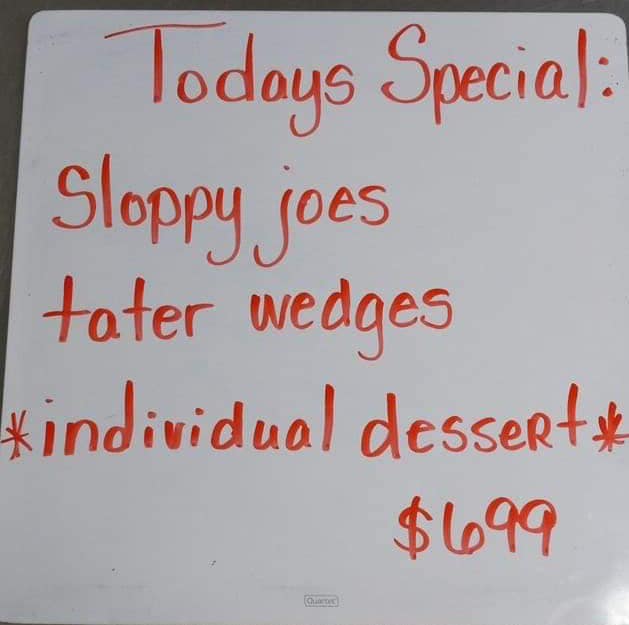 Todays Special:
Sloppy joes
tater wedges
*individual dessert*
$699
Quartet